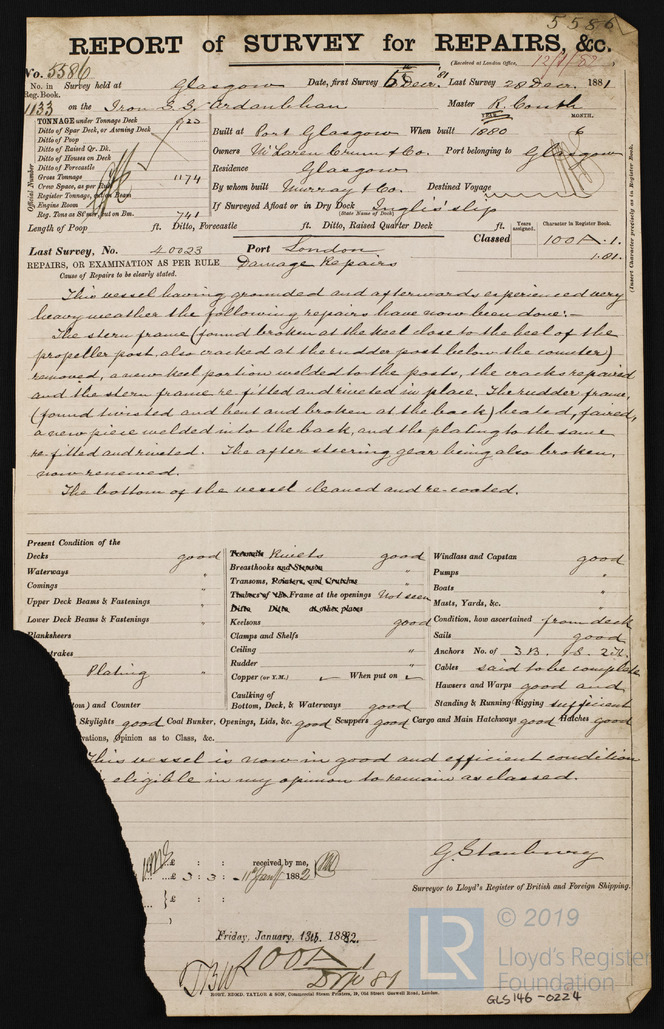 5586
REPORT of SURVEY for REPAIRS, &c.
(Received at London Office,
No. 5586
No. in Reg. Book. Survey held at Glasgow Date, first Survey 6th Decr. 81 Last Survey 28 Decr. 1881
1133 on the Iron S.S. Ardanbhan Master R. Couth
TONNAGE under Tonnage Deck 923
Ditto of Spar Deck, or Awning Deck
Ditto of Poop
Ditto of Raised Qr. Dk.
Ditto of Houses on Deck
Ditto of Forecastle
Gross Tonnage 1174
Crew Space, as per Rule
Register Tonnage, cut on Beam
Engine Room
Reg. Tons as Steamr, cut on Bm. 741
Official Number
YEAR. MONTH.
Built at Port Glasgow When built 1880 6
Owners McLaren Crum & Co. Port belonging to Glasgow
Residence Glasgow
By whom built Murray & Co. Destined Voyage
If Surveyed Afloat or in Dry Dock Inglis' slip
(State Name of Dock)
Length of Poop ft. Ditto, Forecastle ft. Ditto, Raised Quarter Deck ft.
Years assigned. Character in Register Book.
Classed 100A.1.
1.81.
(Insert Character precisely as in Register Book.
Last Survey, No. 40023 Port London
REPAIRS, OR EXAMINATION AS PER RULE Damage Repairs
Cause of Repairs to be clearly stated.
This vessel having grounded and afterwards experienced very
heavy weather the following repairs have now been done:-
The stern frame (found broken at the keel close to the heel of the
propeller post, also cracked at the rudder post below the counter)
removed, a new keel portion welded to the posts, the cracks repaired
and the stern frame re-fitted and riveted in place. The rudder frame,
(found twisted and bent and broken at the back) heated, faired,
a new piece welded into the back, and the plating to the same
re-fitted and riveted. The after steering gear being also broken,
now renewed.
The bottom of the vessel cleaned and re-coated.
Present Condition of the
Decks good
Waterways "
Comings "
Upper Deck Beams & Fastenings "
Lower Deck Beams & Fastenings "
Planksheers
trakes
Plating "
ttom) and Counter
Treenails Rivets good
Breasthooks and Stemson "
Transoms, Pointers, and Crutches "
Timbers of the Frame at the openings Not seen
Ditto Ditto at other places
Keelsons good
Clamps and Shelfs "
Ceiling "
Rudder "
Copper (or Y.M.) When put on
Caulking of
Bottom, Deck, & Waterways good
Windlass and Capstan good
Pumps "
Boats "
Masts, Yards, &c. "
Condition, how ascertained from deck
Sails good
Anchors No. of 3 B. 1 S. 2 K.
Cables said to be complete
Hawsers and Warps good and
Standing & Running Rigging sufficient
Skylights good Coal Bunker, Openings, Lids, &c. good Scuppers good Cargo and Main Hatchways good Hatches good
vations, Opinion as to Class, &c.
This vessel is now in good and efficient condition
eligible in my opinion to remain as classed.
£ : : received by me,
£ 3 : 3 : 11th Jany 1882
£ : :
G. Stanbury
Surveyor to Lloyd's Register of British and Foreign Shipping.
Friday, January, 13th. 1882.
100A 1
81
ROBT. EDMD. TAYLOR & SON, Commercial Steam Printers, 19, Old Street Goswell Road, London.
LR
© 2019
Lloyd's Register
Foundation
GLS146-0224